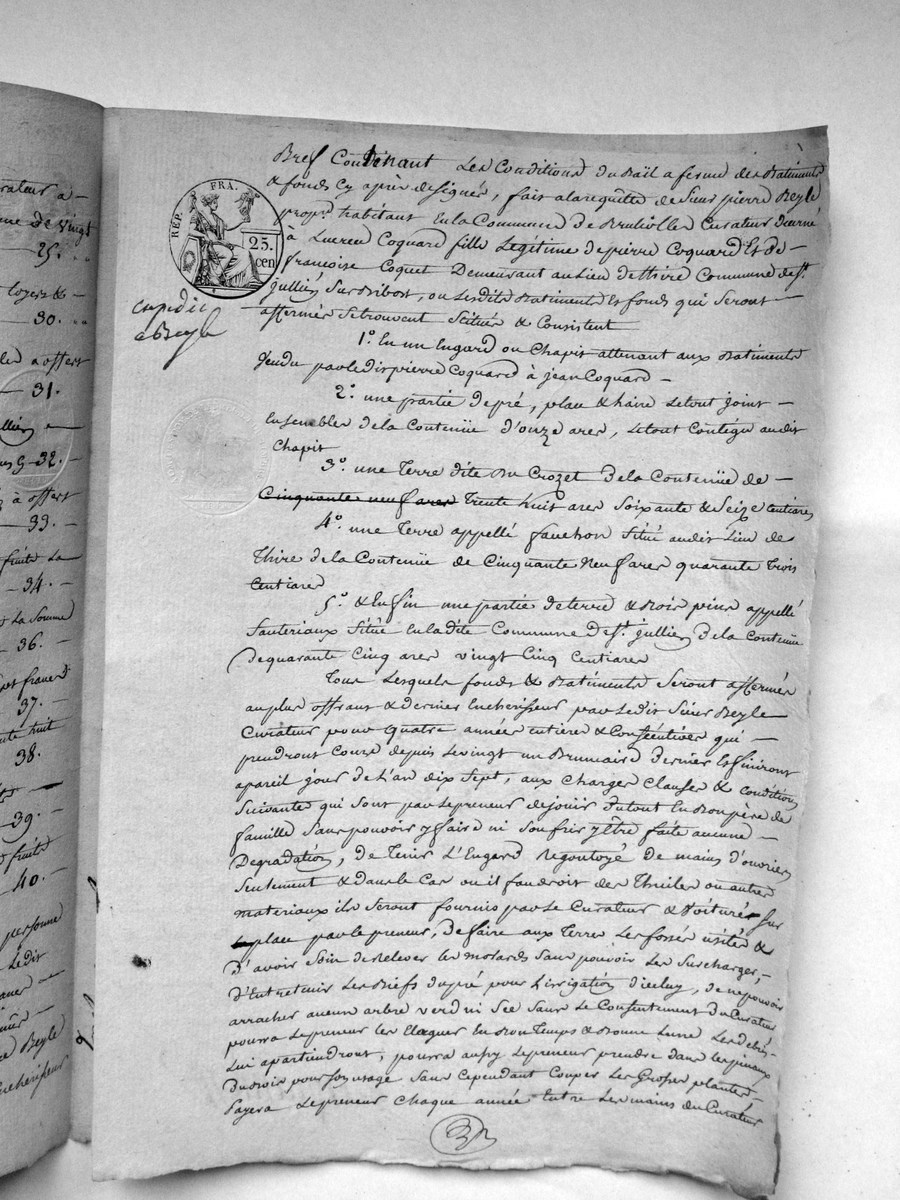 Bref Contenant Les Conditions du Bail a ferme des Batiments
& fonds Cy après designés, fait alarequête de Sieur pierre Beyle
propre. habitant En la Commune de Brulioles Curateur décerné
à Lucrece Coquard fille Légitime de pierre Coquard Et de
francoise Coquet Demeurant au Lieu de thire Commune de St.
jullien Sur Bibost, ou Lesdits Batiments Et fonds qui Seront
affermés Se trouvent Scitués & Consistent
RÉP. FRA.
25. cen
expedie
a Beyle
1.o En un Engard ou Chapit attenant aux Batiments
Vendu par ledit pierre Coquard à jean Coquard
2.o une partie de pré, place & haire Le tout joint
Ensembles de la Contenüe d'onze ares, Le tout Contegu audit
Chapit
3.o une Terre dite Du Crozet De la Contenüe de
Cinquante neuf ares Trente huit ares Soixante & Seize Centiares
4.o une Terre appellé fauchon Situé audit Lieu de
Thire de la Contenüe de Cinquante Neuf ares quarante Trois
Centiares
5.o & Enfin une partie de terre & Bois pins appellé
Sauteriaux Situé En la dite Commune de St. jullien De la Contenüe
De quarante Cinq ares vingt Cinq Centiares
Tous Lesquels fonds & Batiments Seront affermés
au plus offrant & dernier Encherisseur par Ledit Sieur Beyle
Curateur pour quatre années entieres & Consécutives qui
prendront Cours depuis Le vingt un Brumaire Dernier Et finiront
a pareil jour de L'an dix Sept, aux Charges Clauses & conditions
Suivantes qui Sont par Le preneur de jouir Du tout En Bon père de
famille Sans pouvoir y faire ni Soufrir y Etre faite aucune
Degradation, de Tenir L'Engard Regoutoyé de mains d'ouvriers
Seulement & dans le Cas ou il faudroit des Thuiles ou autres
materiaux ils Seront fournis par Le Curateur & Voiturés Sur
place par le preneur, de faire aux Terres Les fossés usités &
D'avoir Soin de relever les motards Sans pouvoir Les Surcharger,
D'Entretenir Les Biefs du pré pour L'irrigation D'iceluy, de ne pouvoir
arracher aucun arbre verd ni Sec Sans Le Consentement du Curateur
pourra Le preneur les Elaguer En Bon Temps & Bonne Lune Les debris
Lui apartiendront, pourra aussy Le preneur prendre dans les pinaux
Du Bois pour Son usage Sans Cependant Couper Les Grosses plantes
Payera Le preneur Chaque année Entre Les mains du Curateur
25.
30.
31.
32.
33.
34.
36.
37.
38.
39.
40.